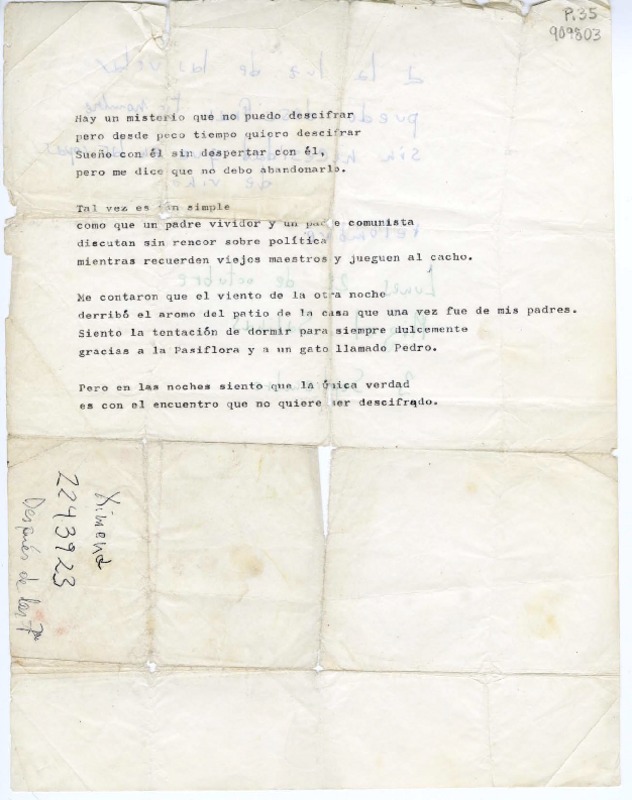 P.35
909803
Hay un misterio que no puedo descifrar
pero desde peco tiempo quiero descifrar
Sueño con él sin despertar con él,
pero me dice que no debo abandonarlo.
Tal vez es tan simple
como que un padre vividor y un padre comunista
discutan sin rencor sobre política
mientras recuerden viejos maestros y jueguen al cacho.
Me contaron que el viento de la otra noche
derribó el aromo del patio de la casa que una vez fue de mis padres.
Siento la tentación de dormir para siempre dulcemente
gracias a la Pasiflora y a un gato llamado Pedro.
Pero en las noches siento que la única verdad
es con el encuentro que no quiere ser descifrado.
Ximena
2243923
Después de las 7